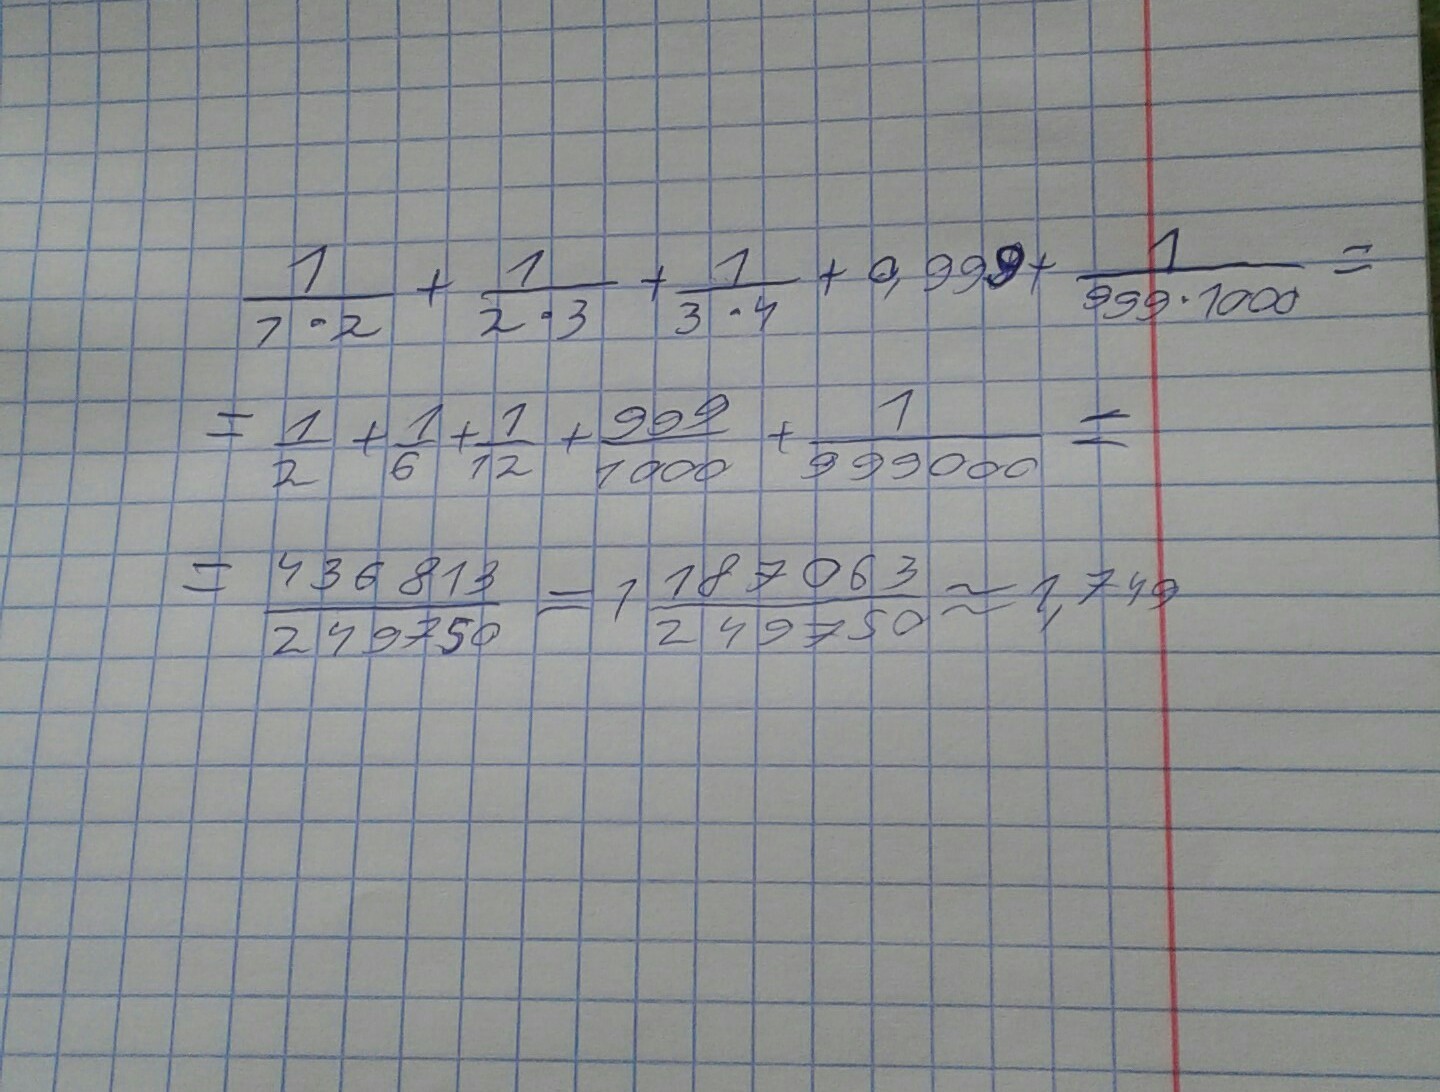 1/(1·2) + 1/(2·3) + 1/(3·4) + 0,999 + 1/(999·1000) =
= 1/2 + 1/6 + 1/12 + 999/1000 + 1/999000 =
= 436813/249750 = 1 187063/249750 ≈ 1,749